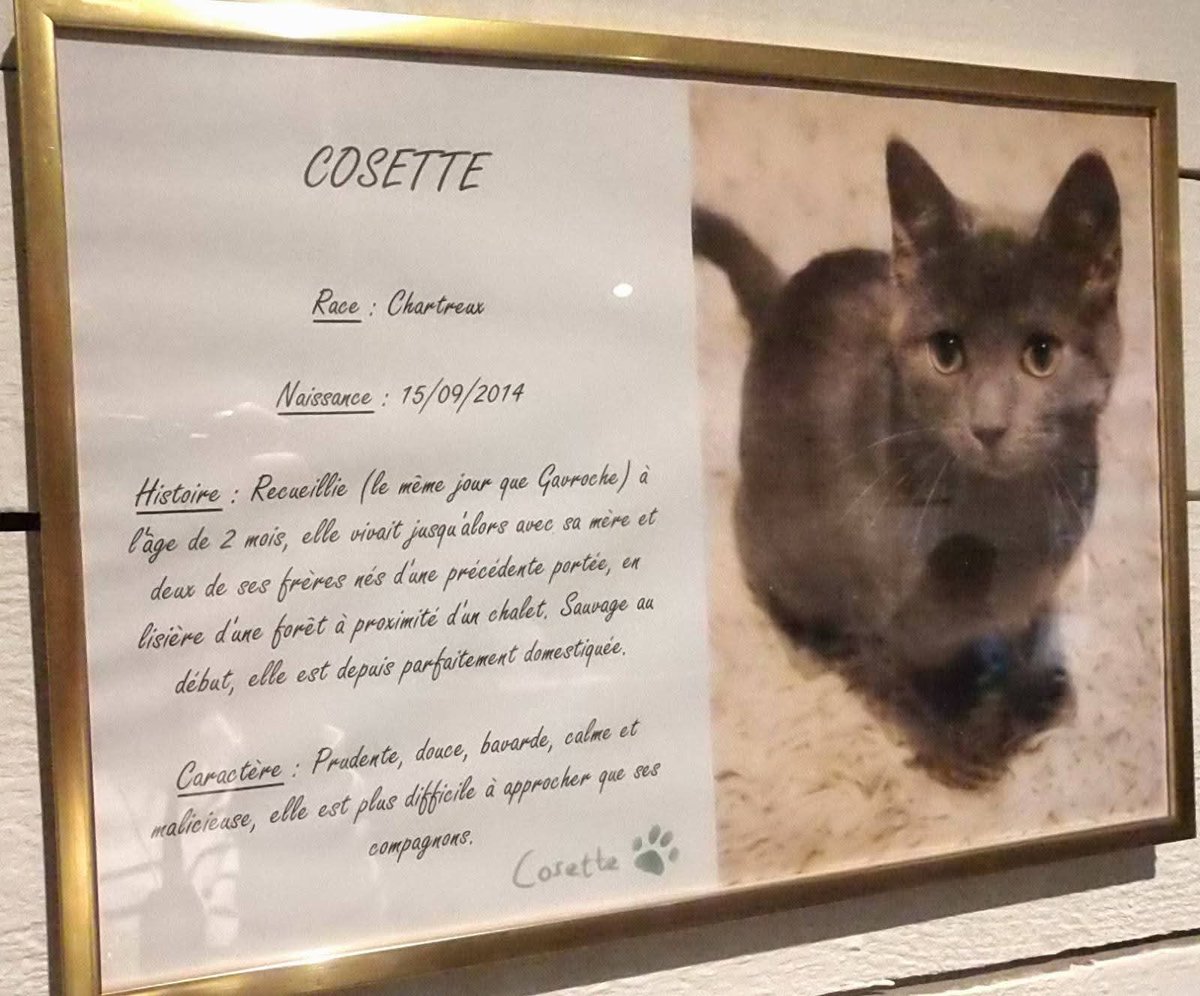 COSETTE
Race : Chartreux
Naissance : 15/09/2014
Histoire : Recueillie (le même jour que Gavroche) à
l'âge de 2 mois, elle vivait jusqu'alors avec sa mère et
deux de ses frères nés d'une précédente portée, en
lisière d'une forêt à proximité d'un chalet. Sauvage au
début, elle est depuis parfaitement domestiquée.
Caractère : Prudente, douce, bavarde, calme et
malicieuse, elle est plus difficile à approcher que ses
compagnons.
Cosette